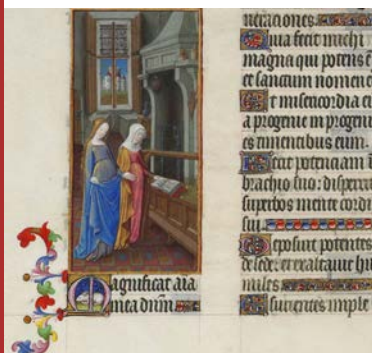 Magnificat aia
mea dnm
neraciones.
Quia fecit michi
magna qui potens e
et sanctum nomen e
Et misericordia ei
a progenie in progeni
es timentibus eum.
Fecit potenciam i
brachio suo: dispersit
superbos mente cordi
sui.
Deposuit potentes
de sede: et exaltavit hu
miles
Esurientes imple